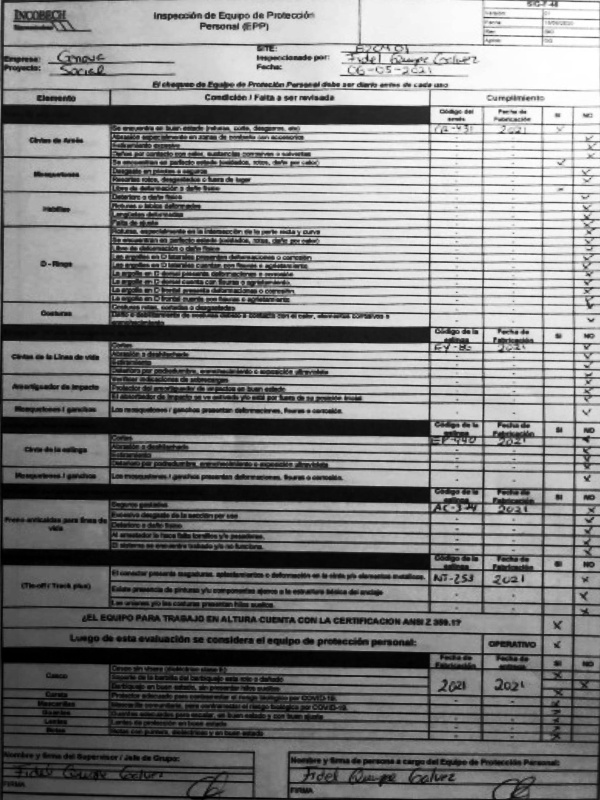 INCOBECH
Inspección de Equipo de Protección
Personal (EPP)
SIG-F-48
Empresa: Genova
Proyecto: Social
SITE:
Inspeccionado por: Fidel Quispe Galvez
Fecha: 06-05-2021
El chequeo de Equipo de Protección Personal debe ser diario antes de cada uso
Elemento Condición / Falta a ser revisada Cumplimiento
Código del arnés Fecha de Fabricación SI NO
Cintas de Arnés
Se encuentra en buen estado (roturas, corte, desgarros, etc) 2021
Abrasión especialmente en zonas de contacto con accesorios
Estiramiento excesivo
Daños por contacto con calor, sustancias corrosivas o solventes
Mosquetones
Se encuentran en perfecto estado (oxidados, rotos, daño por calor)
Desgaste en pristes o seguros
Resortes rotos, desgastados o fuera de lugar
Libre de deformación o daño físico
Hebillas
Deterioro o daño físico
Roturas o lados deformados
Lengüetas deformadas
Falta de ajuste
D - Rings
Roturas, especialmente en la intersección de la parte recta y curva
Se encuentran en perfecto estado (oxidados, rotos, daño por calor)
Libre de deformación o daño físico
Las argollas en D laterales presentan deformaciones o corrosión
Las argollas en D laterales cuentan con fisuras o agrietamiento
La argolla en D dorsal presenta deformaciones o corrosión
La argolla en D dorsal cuenta con fisuras o agrietamiento.
La argolla en D frontal presenta deformaciones o corrosión
La argolla en D frontal cuenta con fisuras o agrietamiento
Costuras
Costuras rotas, cortadas o desgastadas
Código de la eslinga Fecha de Fabricación SI NO
Cintas de la Línea de vida
Cortes 2021
Abrasión o deshilachado
Estiramiento
Deterioro por podredumbre, enmohecimiento o exposición ultravioleta
Amortiguador de impacto
Verificar indicadores de sobrecargas
Protector del amortiguador de impactos en buen estado
El absorbedor de impacto se ve activado y/o está por fuera de su posición inicial
Mosquetones / ganchos Los mosquetones / ganchos presentan deformaciones, fisuras o corrosión.
Código de la eslinga Fecha de Fabricación SI NO
Cinta de la eslinga
Cortes EP-440 2021
Abrasión o deshilachado
Estiramiento
Deterioro por podredumbre, enmohecimiento o exposición ultravioleta
Mosquetones / ganchos Los mosquetones / ganchos presentan deformaciones, fisuras o corrosión.
Código de la eslinga Fecha de Fabricación SI NO
Freno-anticaídas para línea de vida
Seguros gastados AC-324 2021
Excesivo desgaste de la sección por uso
Deterioro o daño físico
Al arrestador le hace falta tornillos y/o pasadores.
El sistema se encuentra trabado y/o no funciona.
Código de la eslinga Fecha de Fabricación SI NO
(Tie-off / Track plus)
El conector presenta magaduras, aplastamientos o deformación en la cinta y/o elementos metálicos. NT-253 2021
Existe presencia de pinturas y/o componentes ajenos a la estructura básica del anclaje
Las uniones y/o las costuras presentan hilos sueltos.
¿EL EQUIPO PARA TRABAJO EN ALTURA CUENTA CON LA CERTIFICACION ANSI Z 359.1?
Luego de esta evaluación se considera el equipo de protección personal: OPERATIVO
Fecha de Fabricación Fecha de SI NO
Casco
Soporte de la barbilla del barbiquejo esta roto o dañado
Barbiquejo en buen estado, sin presentar hilos sueltos 2021 2021
Careta Protector adecuado para contrarrestar el riesgo biológico por COVID-19.
Mascarillas Mascarilla comunitaria, para contrarrestar el riesgo biológico por COVID-19.
Guantes Guantes adecuados para escalar, en buen estado y con buen ajuste
Lentes Lentes de protección en buen estado
Botas Botas con puntera, dieléctricas y en buen estado
Nombre y firma del Supervisor / Jefe de Grupo:
Fidel Quispe Galvez
FIRMA
Nombre y firma de persona a cargo del Equipo de Protección Personal:
Fidel Quispe Galvez
FIRMA